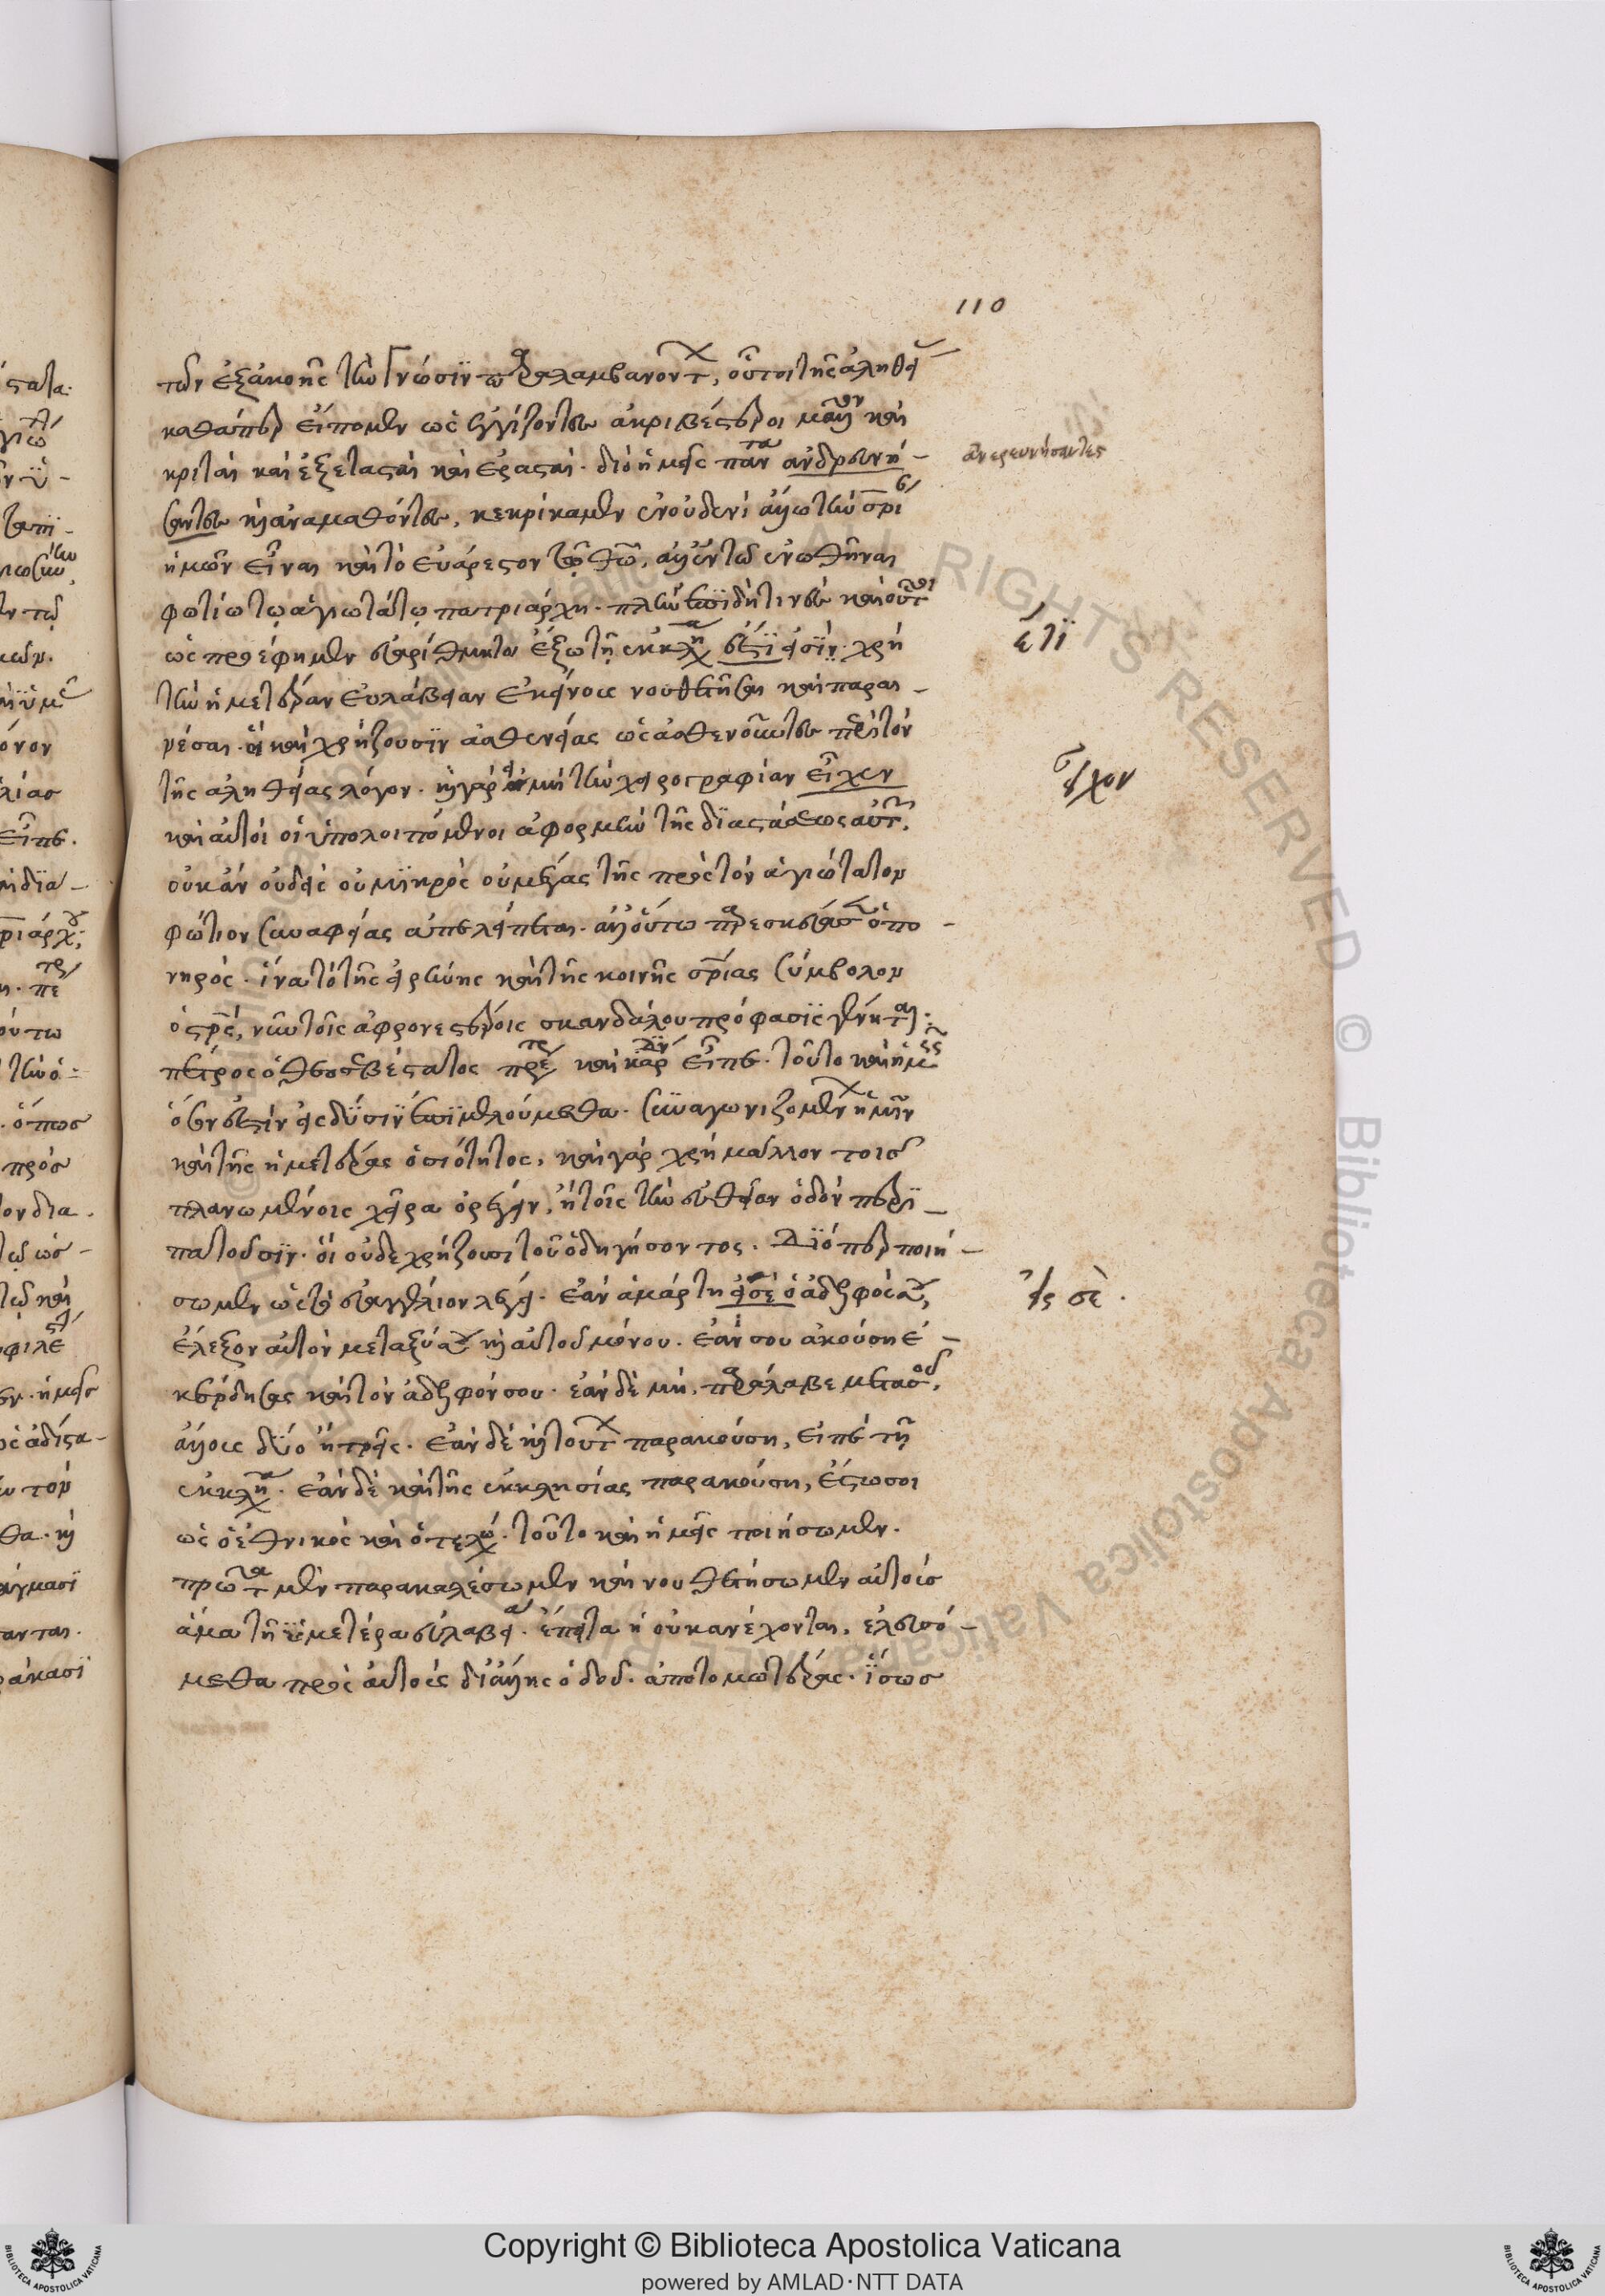 110
τῶν ἐξ ἀκοῆς τὴν γνῶσιν παραλαμβανόντων, οὗτοι τῆς ἀληθείας
καθάπερ εἴπομεν ὡς ἐγγίζοντες ἀκριβέστεροι μᾶλλον καὶ
κριταὶ καὶ ἐξετασταὶ καὶ ἐρασταί. διὸ ἡμεῖς πάντα ἀνδρευνή-
ἀνερευνήσαντες
σαντες καὶ ἀναμαθόντες, κεκρίκαμεν ἐν οὐδενὶ ἄλλω τὴν σρίαν
ἡμῶν εἶναι καὶ τὸ εὐάρεστον τῷ θῶ, ἀλλ' ἐν τῶ ἑνωθῆναι
φωτίω τῷ ἁγιωτάτῳ πατριάρχη. πλὴν ἐπειδή τινες καὶ οὗτοι
ὡς προέφημεν εὐαρίθμητοι ἔξω τῆς ἐκκλησίας ἐστὶ εἰσὶν. χρὴ
ἔτι
τὴν ἡμετέραν εὐλάβειαν ἐκείνοις νουθετῆσαι καὶ παραι-
νέσαι. οἳ καὶ χρήζουσιν ἀσθενείας ὡς ἀσθενοῦντες περὶ τὸν
τῆς ἀληθείας λόγον. καὶ γὰρ εἰ μὴ τὴν χειρογραφίαν εἶχεν
εἶχον
καὶ αὐτοὶ οἱ ὑπολοιπόμενοι ἀφορμὴν τῆς διαστάσεως αὐτῶν,
οὐκ ἂν οὐδεὶς οὐ μικρὸς οὐ μέγας τῆς πρὸς τὸν ἁγιώτατον
φώτιον συναφείας ἀπελείπετο. ἀλλ' οὕτω παρεσκεύασεν ὁ πο-
νηρὸς. ἵνα τὸ τῆς εἰρήνης καὶ τῆς κοινῆς σρίας σύμβολον
ὁ σρός, νῦν τοῖς ἀφρονεστέροις σκανδάλου πρόφασις γένηται.
πέτρος ὁ θεοσεβέστατος πρεσβύτερος καὶ καρδινάλιος εἶπε. τοῦτο καὶ ἡμεῖς
ὅσον ἐστὶν εἰς δύσιν ἐπιμελούμεθα. συναγωνιζομένων ἡμῖν
καὶ τῆς ἡμετέρας ὁσιότητος, καὶ γὰρ χρὴ μᾶλλον τοῖς
πλανωμένοις χεῖρα ὀρέγειν, ἢ τοῖς τὴν εὐθεῖαν ὁδὸν περι-
πατοῦσιν. οἳ οὐδὲ χρήζουσι τοῦ ὁδηγήσοντος. Διόπερ ποιή-
σωμεν ὡς τὸ εὐαγγέλιον λέγει. ἐὰν ἁμάρτη εἰς σὲ ὁ ἀδελφός σου,
εἰς σὲ.
ἔλεξον αὐτὸν μεταξὺ σοῦ καὶ αὐτοῦ μόνου. ἐάν σου ἀκούση ἐ-
κέρδησας καὶ τὸν ἀδελφόν σου. ἐὰν δὲ μὴ, παράλαβε μετὰ σοῦ,
ἄλλους δύο ἢ τρεῖς. ἐὰν δὲ καὶ τούτων παρακούση, εἰπὲ τῆ
ἐκκλησία. ἐὰν δὲ καὶ τῆς ἐκκλησίας παρακούση, ἔστω σοι
ὡς ὁ ἐθνικὸς καὶ ὁ τελώνης. τοῦτο καὶ ἡμεῖς ποιήσωμεν.
πρῶτα μὲν παρακαλέσωμεν καὶ νουθετήσωμεν αὐτοὺς
ἅμα τῆ ὑμετέρα εὐλαβεία. ἔπειτα εἰ οὐκ ἀνέχονται, ἐλευσό-
μεθα πρὸς αὐτοὺς δι' ἄλλης ὁδοῦ. ἀποτομωτέρας. ἴσως
Copyright © Biblioteca Apostolica Vaticana
powered by AMLAD·NTT DATA